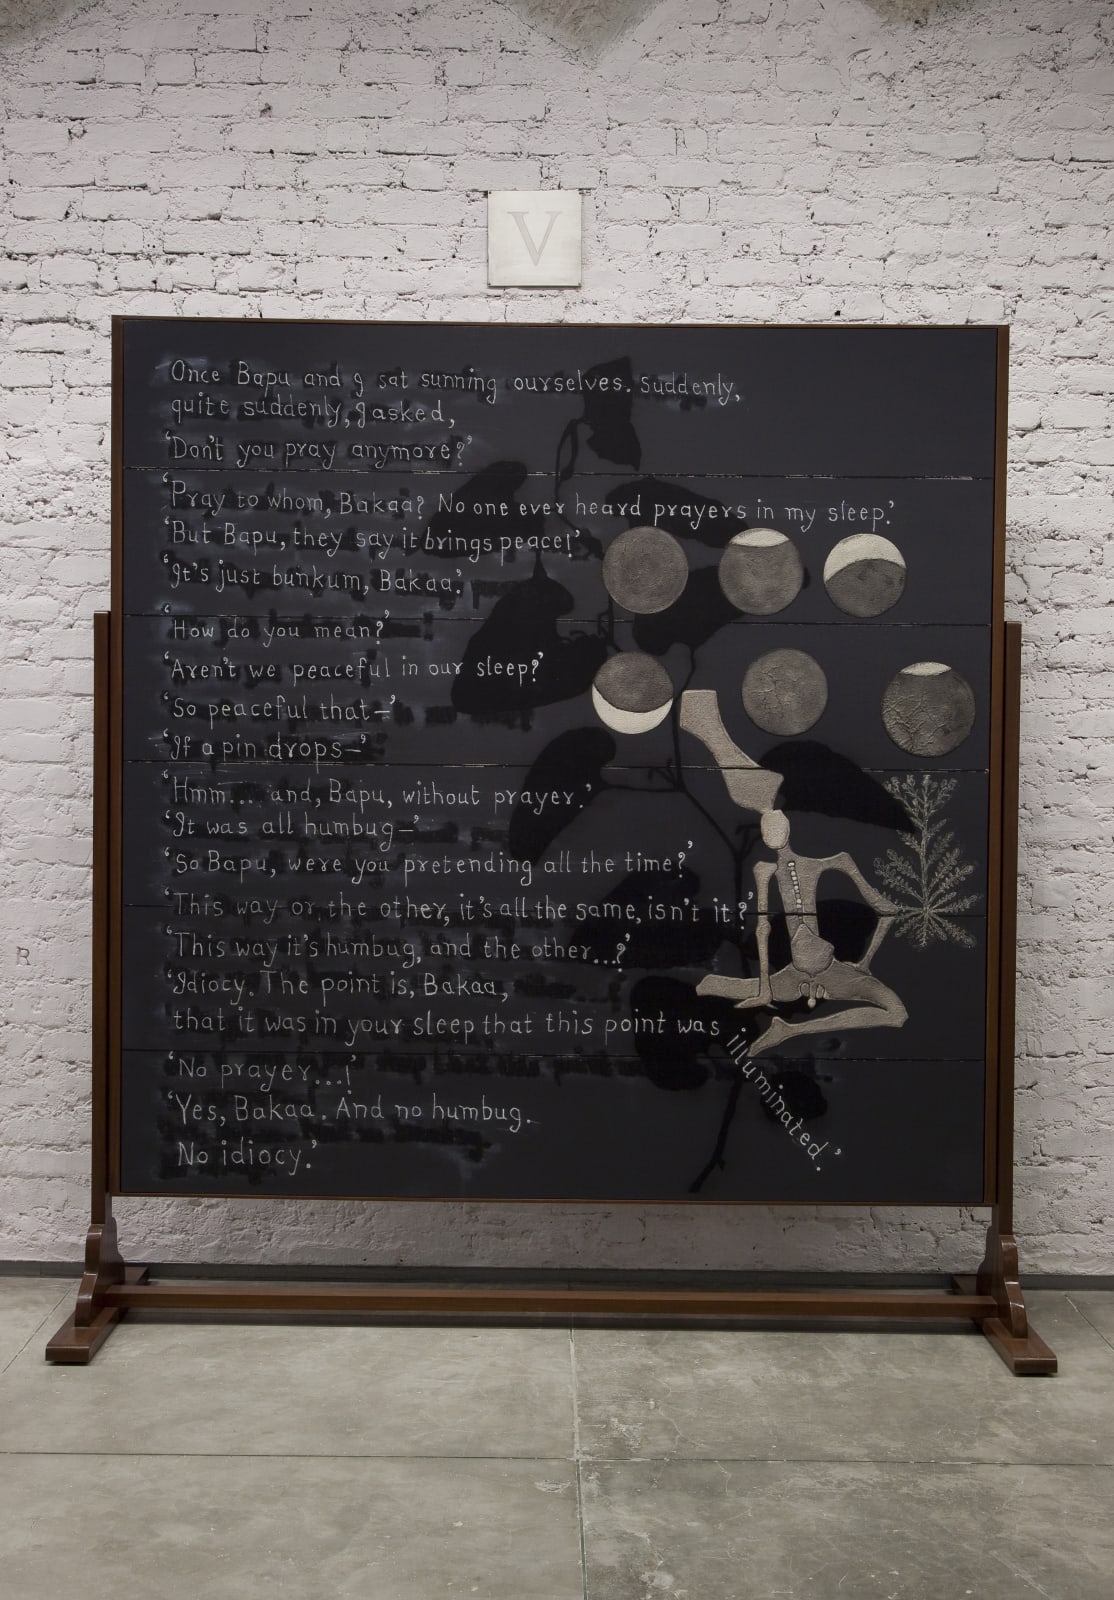 V
Once Bapu and I sat sunning ourselves. Suddenly,
quite suddenly, I asked,
'Don't you pray anymore?'
'Pray to whom, Bakaa? No one ever heard prayers in my sleep.'
'But Bapu, they say it brings peace!'
'It's just bunkum, Bakaa.'
'How do you mean?'
'Aren't we peaceful in our sleep?'
'So peaceful that—'
'If a pin drops—'
'Hmm... and, Bapu, without prayer.'
'It was all humbug—'
'So Bapu, were you pretending all the time?'
'This way or the other, it's all the same, isn't it?'
'This way it's humbug, and the other...?'
'Idiocy. The point is, Bakaa,
that it was in your sleep that this point was illuminated.'
'No prayer...!'
'Yes, Bakaa. And no humbug.
No idiocy.'